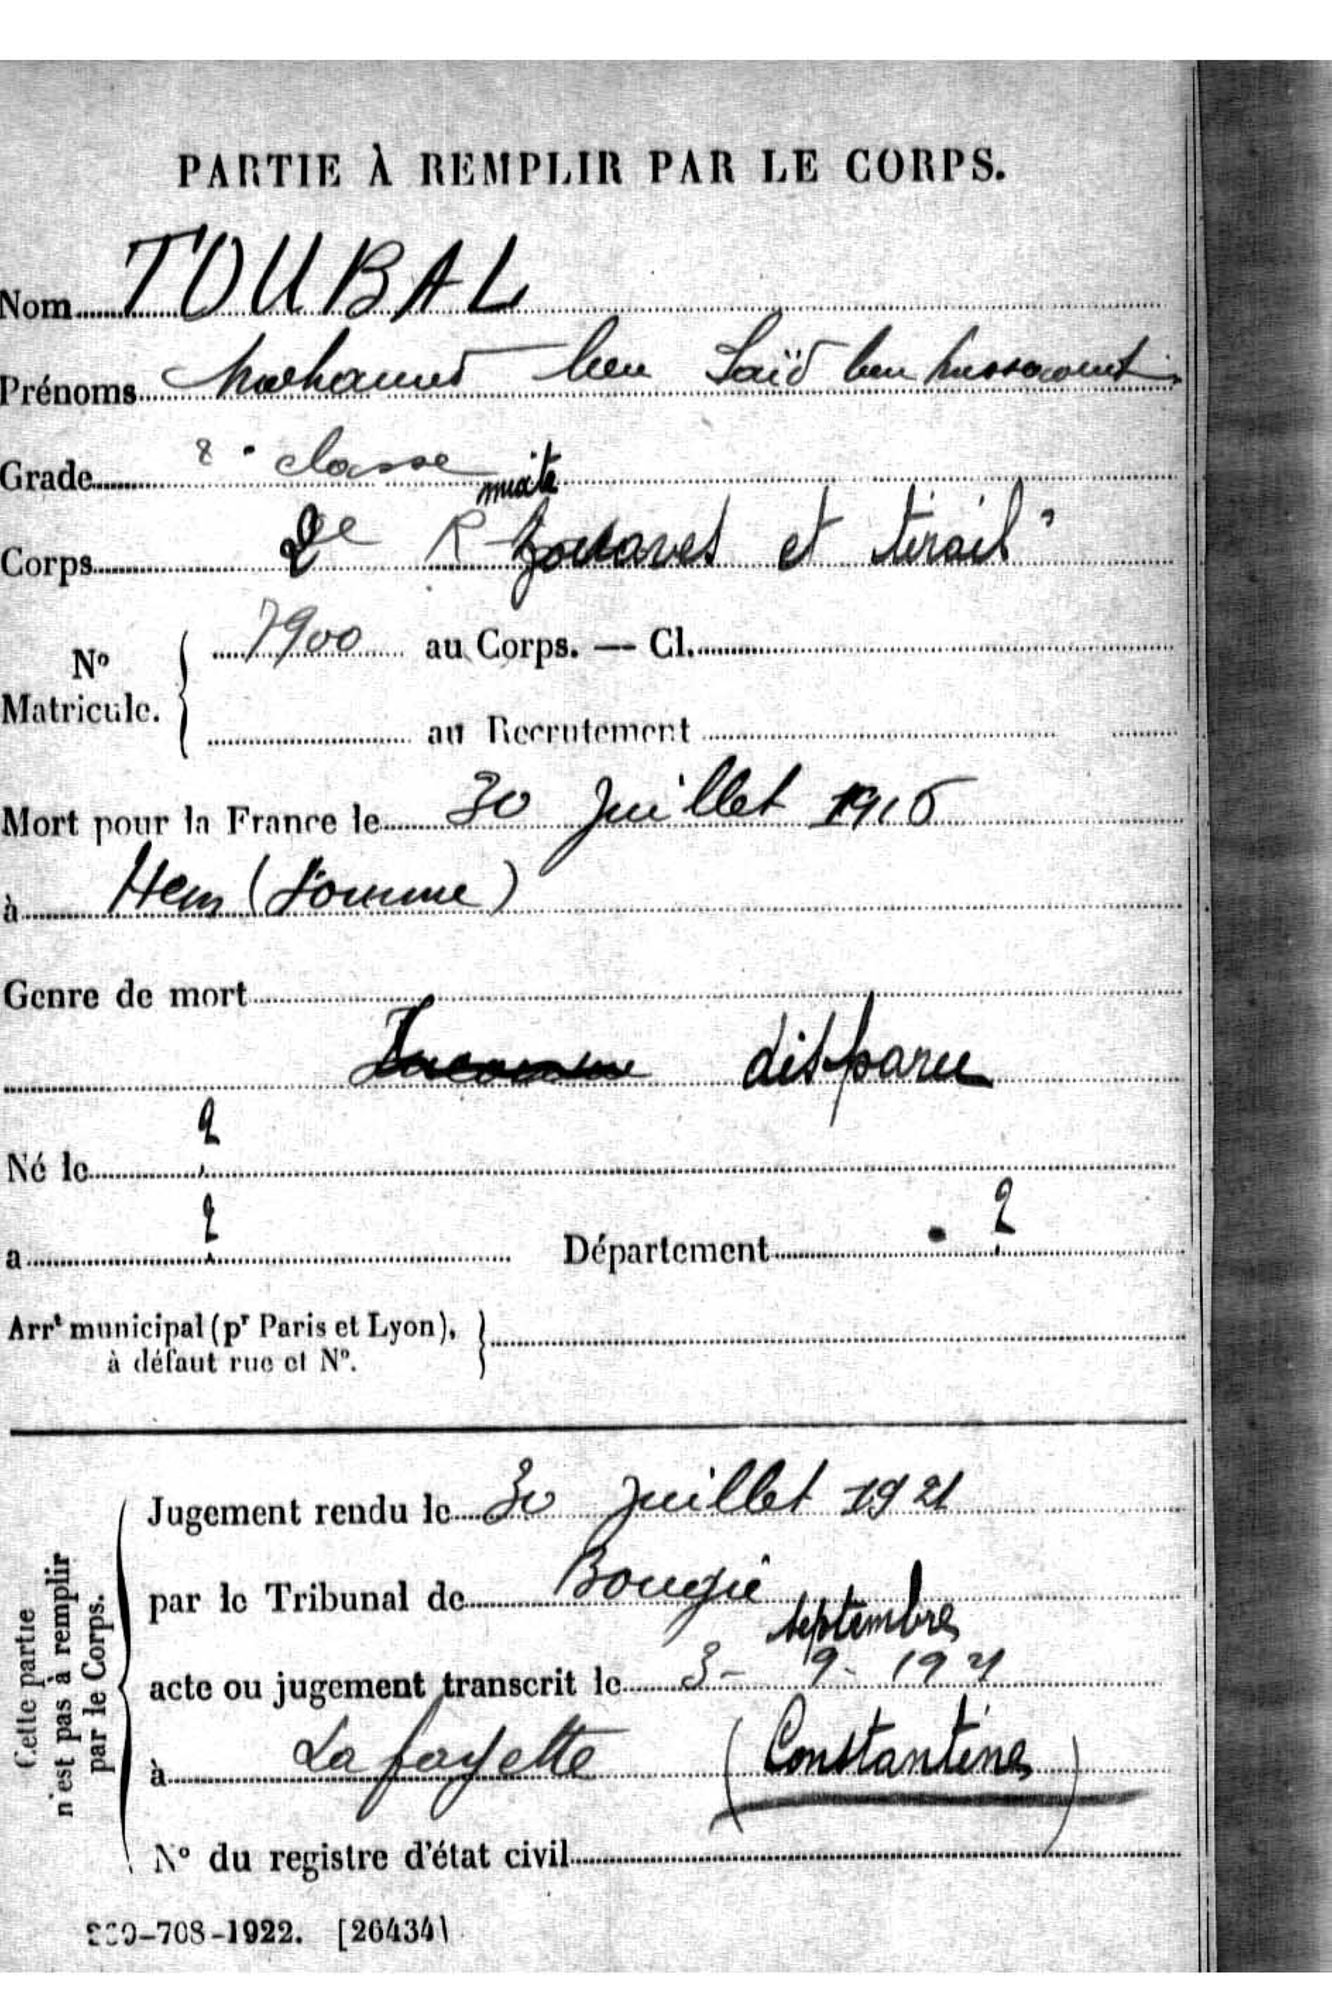 PARTIE À REMPLIR PAR LE CORPS.
Nom TOUBAL
Prénoms Mohamed ben Saïd ben
Grade 2e classe
mixte
Corps 2e R Zouaves et tirail"
7900 au Corps. — Cl.
N°
Matricule.
au Recrutement
Mort pour la France le 30 Juillet 1916
à Hem (Somme)
Genre de mort
disparu
Né le ?
a ? Département ?
Arrt municipal (pr Paris et Lyon),
à défaut rue et N°.
Cette partie
n'est pas à remplir
par le Corps.
Jugement rendu le 30 Juillet 1921
par le Tribunal de Bougie
septembre
acte ou jugement transcrit le 3-9-1921
à Lafayette (Constantine)
N° du registre d'état civil
-708-1922. [26434]